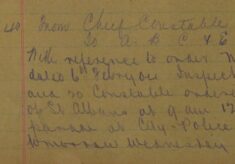 From Chief Constable
to A B C & E
With reference to order
dated 6 Inspector
and 20 Constables
of St Albans at 9 am 12
parade at City Police
tomorrow Wednesday